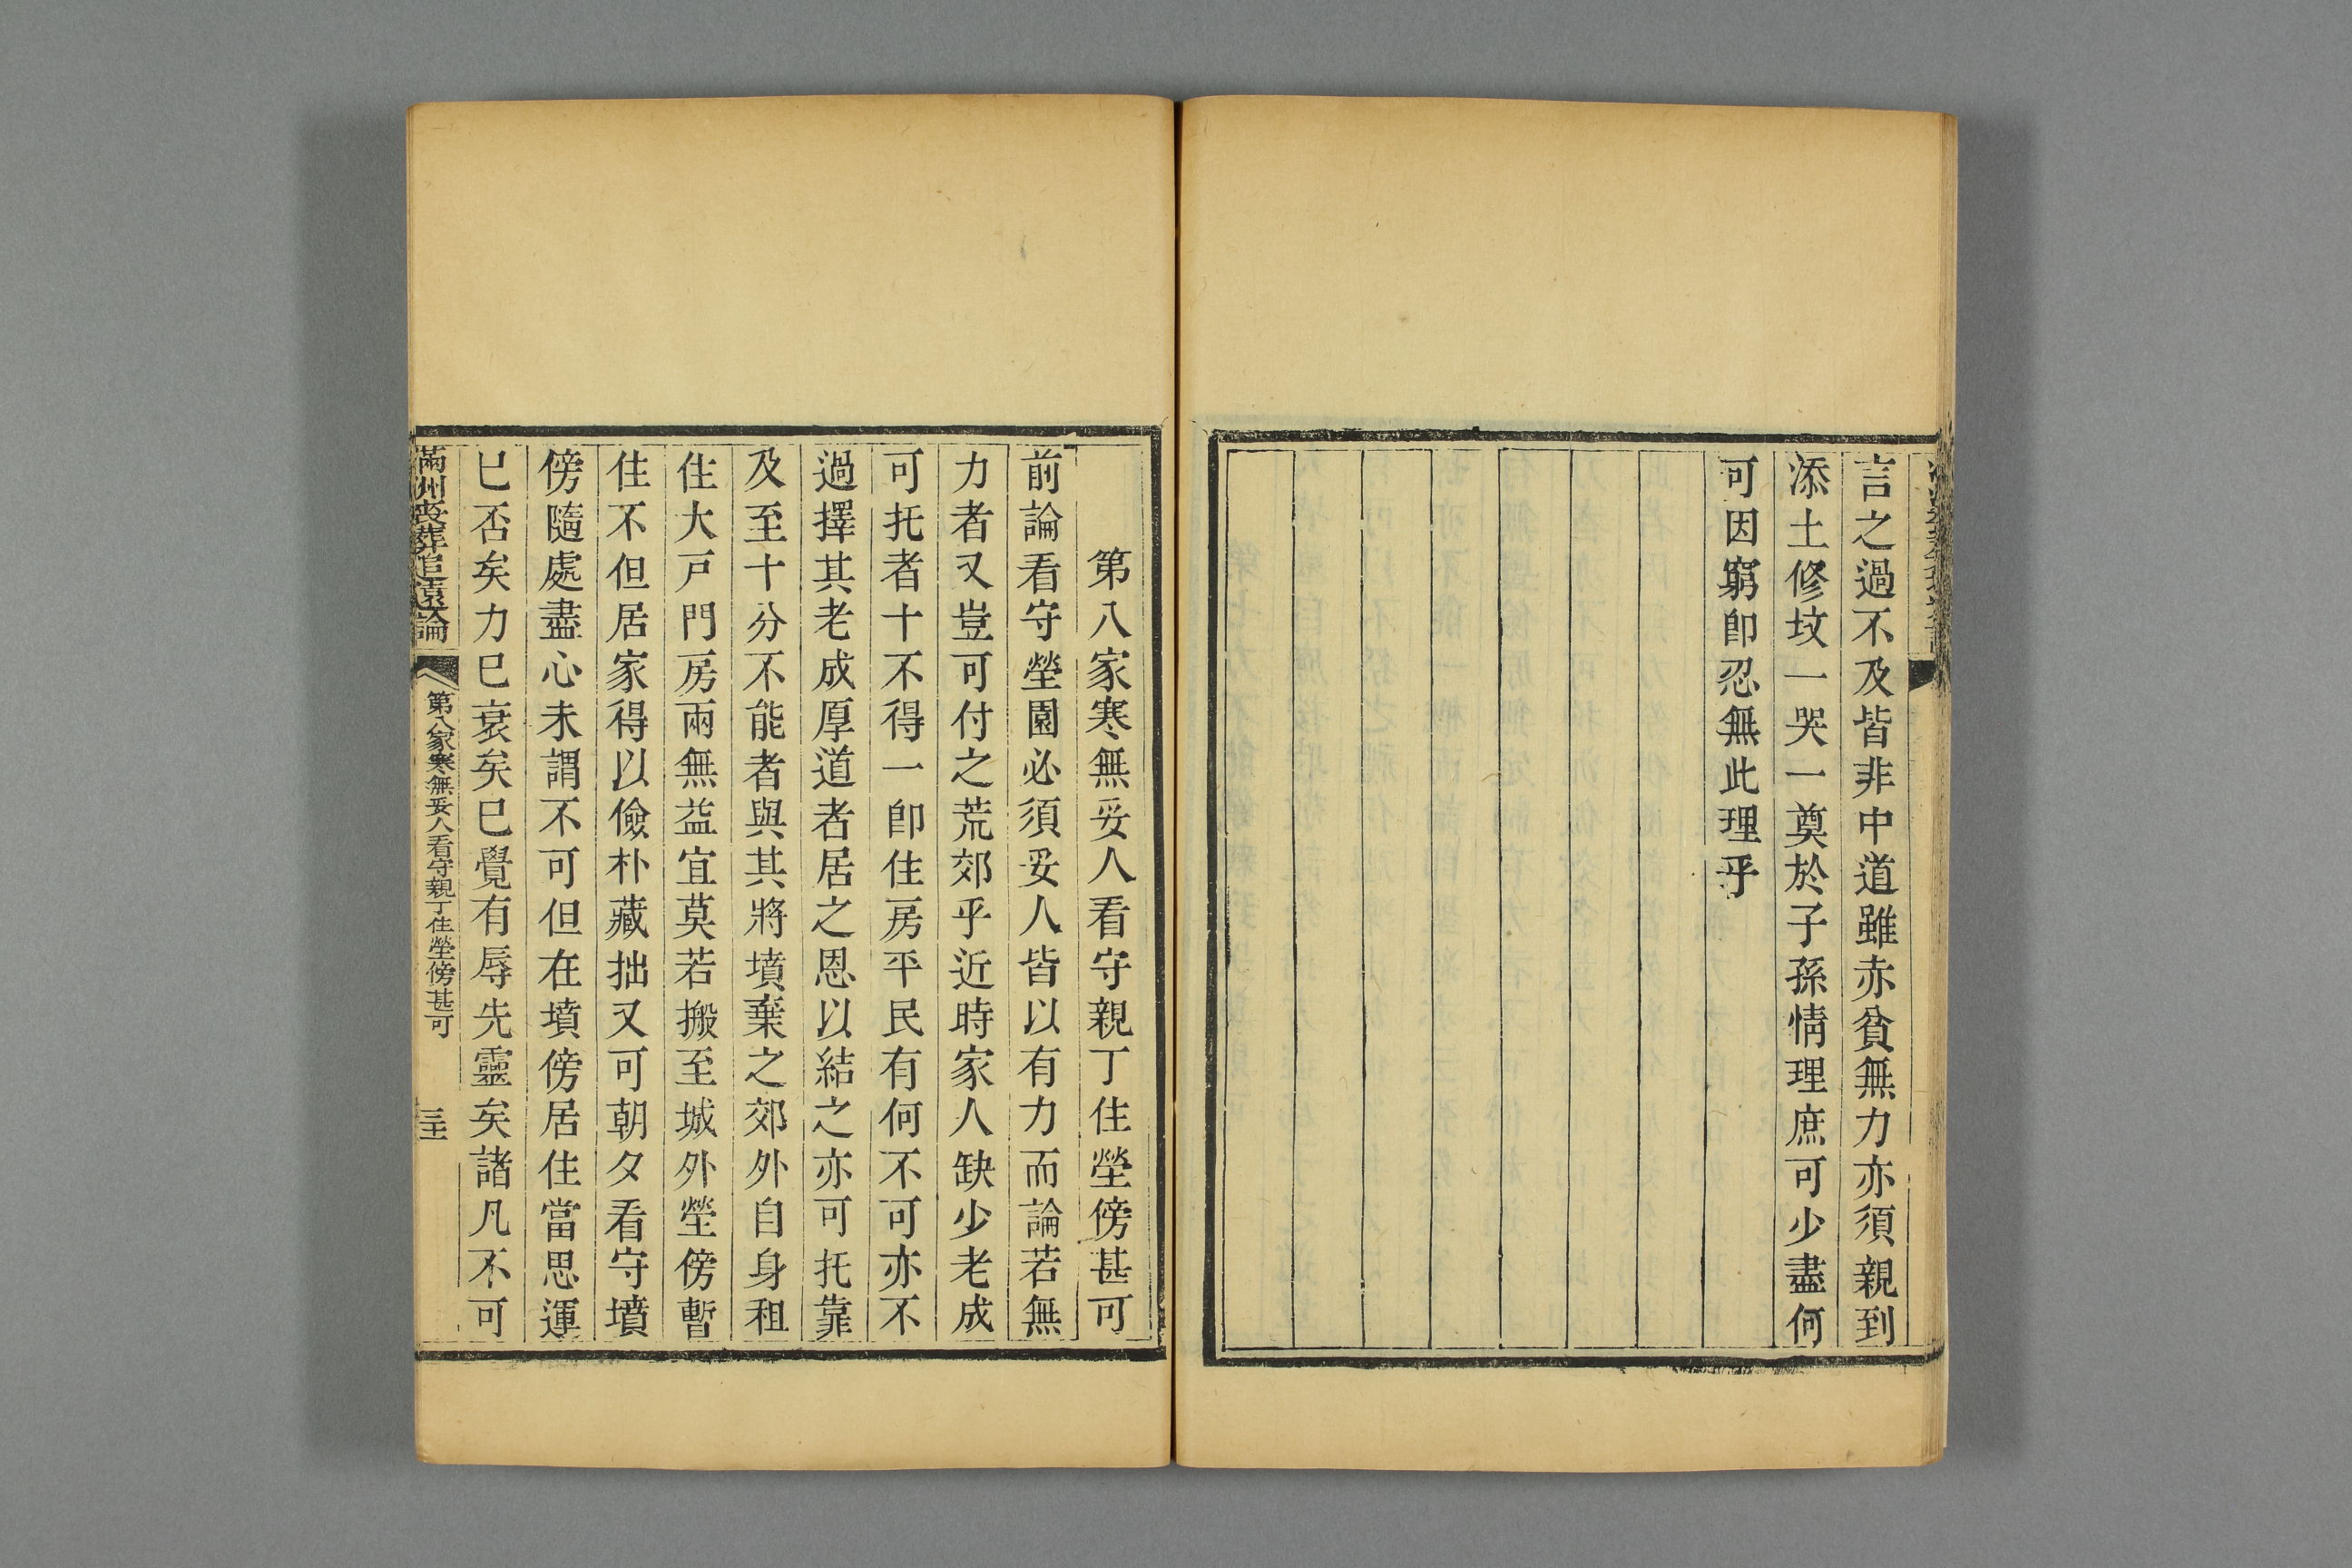 言之過不及皆非中道雖赤貧無力亦須親到
添土修坟一哭一奠於子孫情理庶可少盡何
可因窮卽忍無此理乎
第八家寒無妥人看守親丁住塋傍甚可
前論看守塋園必須妥人皆以有力而論若無
力者又豈可付之荒郊乎近時家人缺少老成
可托者十不得一卽住房平民有何不可亦不
過擇其老成厚道者居之恩以結之亦可托靠
及至十分不能者與其將墳棄之郊外自身租
住大戸門房兩無益宜莫若搬至城外塋傍暫
住不但居家得以儉朴藏拙又可朝夕看守墳
傍隨處盡心未謂不可但在墳傍居住當思運
已否矣力已衰矣已覺有辱先靈矣諸凡不可
滿洲喪葬追遠論
第八家寒無妥人看守親丁住塋傍甚可